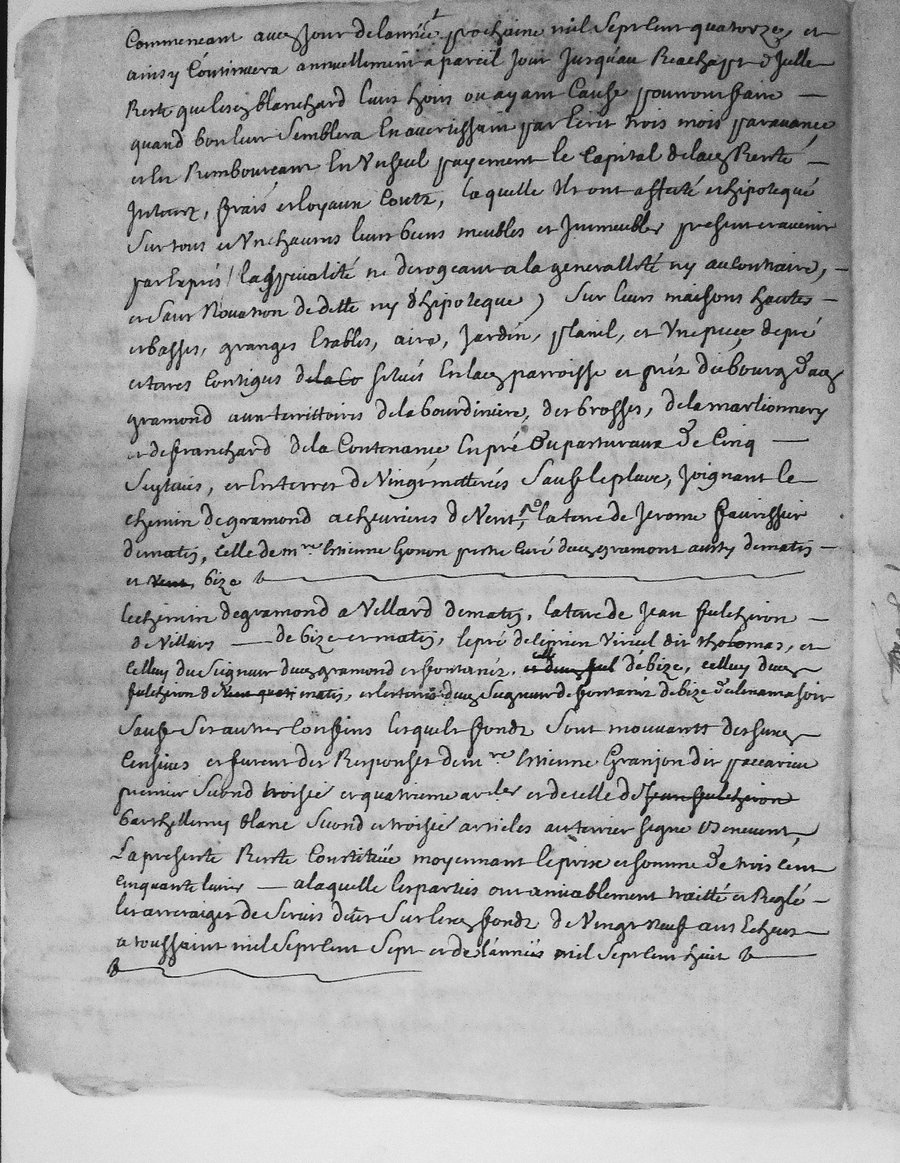 Commencant aud Jour de lannée prochaine mil Sept Cent quatorze, et
ainsy Continuera annuellement a pareil Jour Jusquau Reachapt d'Jcelle
Rente que lesd blanchard leurs hoirs ou ayant Cause pourront faire —
quand bon leur Semblera En avertissant par Ecrit trois mois paravance
et En Rembourcant En Un Seul payement le Capital de lad Rente —
frais et loyaux Coutz, laquelle Ils ont affecté et hipotequé
Sur tous et Un chacuns leurs biens meubles et Jmmeubles present et avenir
par Expres (la speciallité ne derogeant a la generallité ny au Contraire, —
et Sans Novation de dette ny d'hipoteque) Sur leurs maisons hautes —
et basses, granges Etables, aire, Jardin, et Une piece de pré
et terres Contigus de la Co Scitués En lad parroisse et pres du bourg dud
gramond aux territoires de la bourdiniere, des brosses, de la
et de franchard de la Contenance En pré Ou pasturaux de Cinq —
et En terres de Vingt Sauf le plus, Joignant le
Chemin de gramond a cheurieres de Vent, la terre de Jerome
de matin, celle de mre Estienne gonon pretre Curé dud gramont aussy de matin —
et Vent, bize
le chemin de gramond a Villard de matin, la terre de Jean fulchiron —
de Villars — de bize et matin, le pré de dit tholomas, et
Celluy du Seigneur dud gramond et fontanés, de bize, celluy dud
fulchiron de matin, et les terres dud Seigneur de fontanés de bize
Sauf Ses autres Confins lesquels fonds Sont mouvants des susd
Censives et furent des Responses de mre Estienne Granjon dit
premier Second troisie et quatrieme arles et de celle de Jean fulchiron
barthellemy blanc Second et troisie articles au terrier Signe
La presente Rente Constituëe moyennant le prix et somme de trois cent
Cinquante livres — a laquelle les parties ont amiablement traitté et Reglé —
les arreraiges de Servis deus Sur lesd fonds de Vingt neuf ans Echeus —
a toussaint mil Sept Cent Sept et de l'année mil Sept Cent huit —